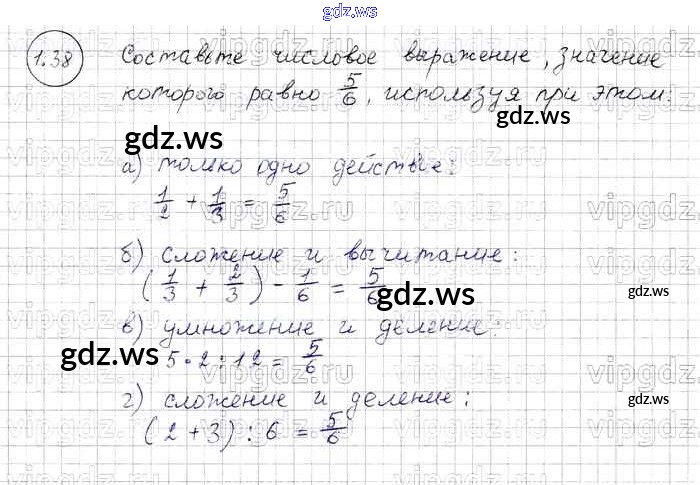 gdz.ws
1.38 Составьте числовое выражение, значение
которого равно 5/6, используя при этом:
gdz.ws
gdz.ws
а) только одно действие:
1/2 + 1/3 = 5/6
б) сложение и вычитание:
(1/3 + 2/3) - 1/6 = 5/6
gdz.ws
gdz.ws
в) умножение и деление:
5 · 2 : 12 = 5/6
gdz.ws
г) сложение и деление:
gdz.ws
(2 + 3) : 6 = 5/6
vipgdz.ru